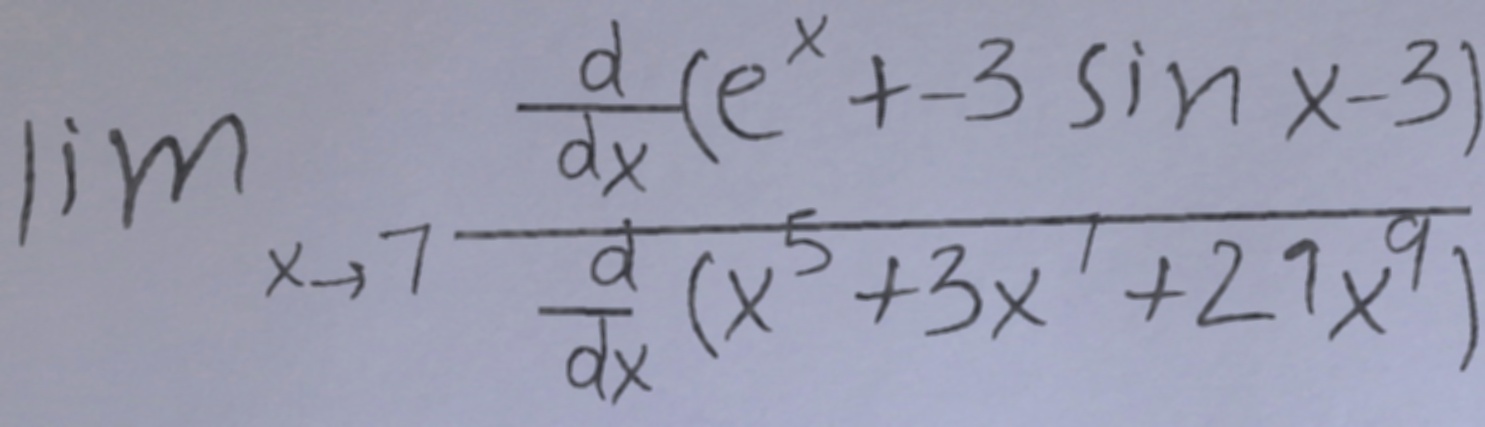 \lim_{x \to 7} \frac{\frac{d}{dx}(e^x + -3 \sin x - 3)}{\frac{d}{dx}(x^5 + 3x^7 + 29x^9)}